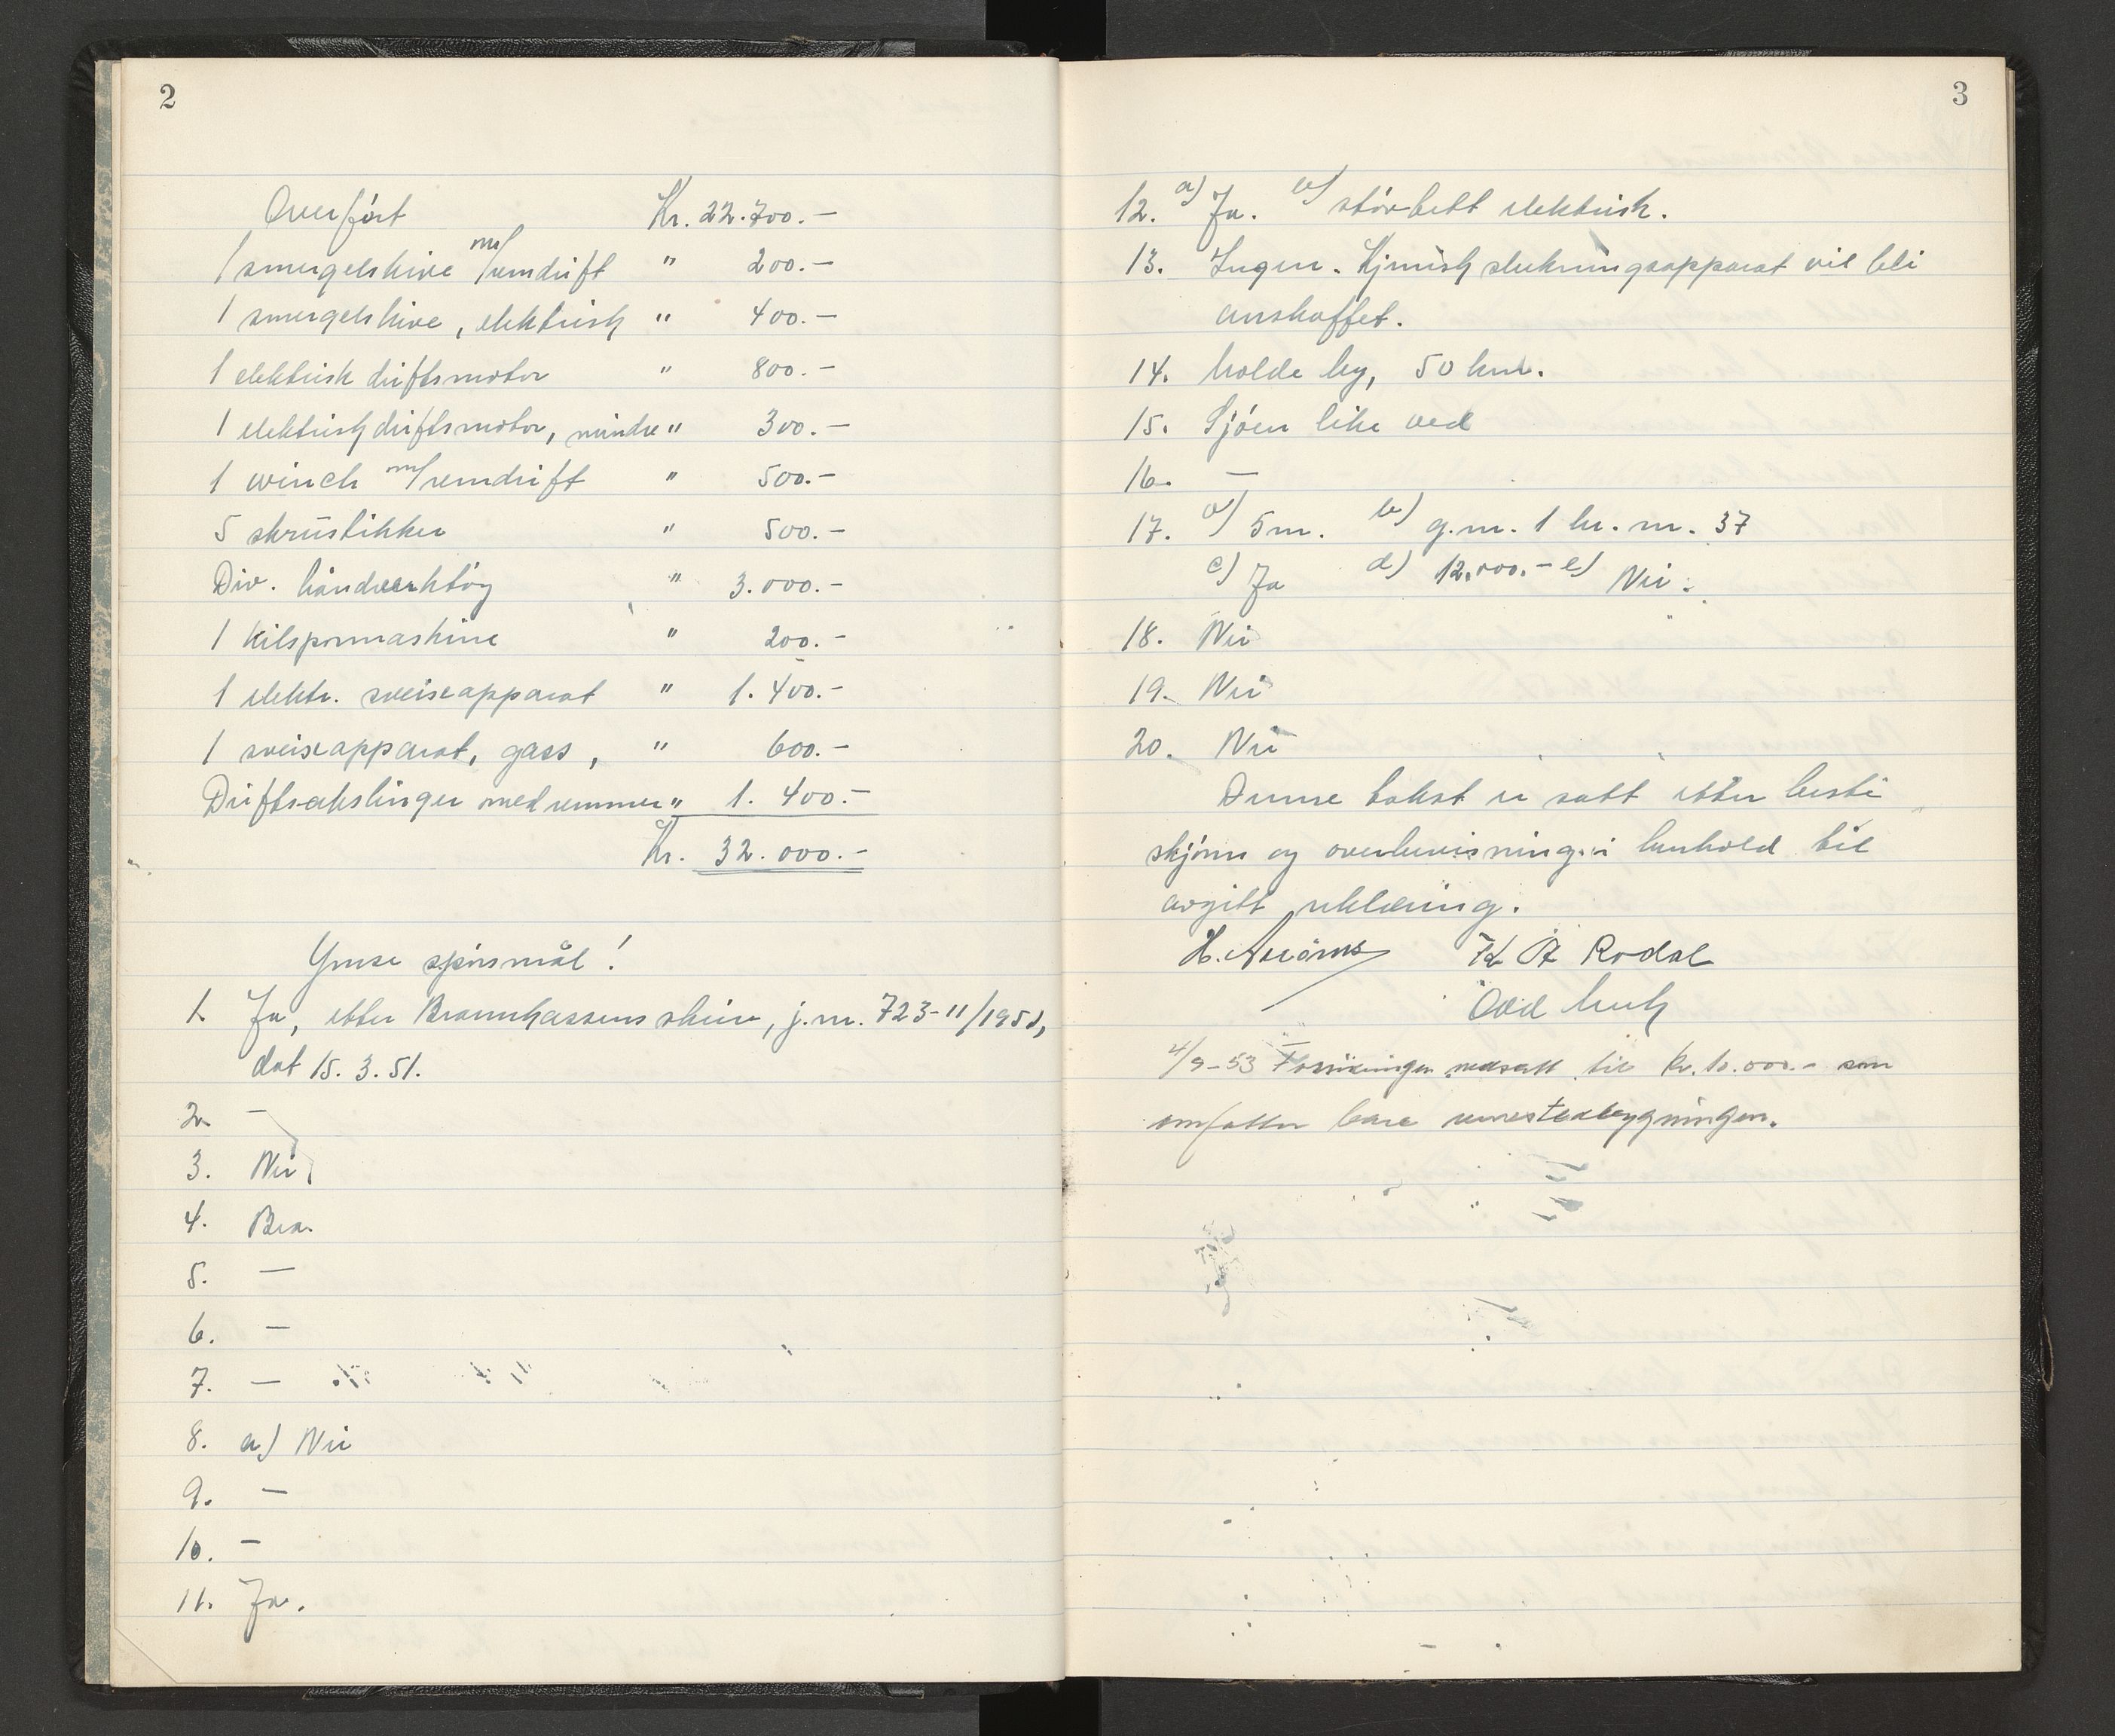 2
Overført Kr. 22.700.-
1 smergelskive m/remdrift " 200.-
1 smergelskive, elektrisk " 400.-
1 elektrisk driftsmotor " 800.-
1 elektrisk driftsmotor, mindre " 300.-
1 winch m/remdrift " 500.-
5 skrustikker " 500.-
Div. håndverktøy " 3.000.-
1 kilspormaskine " 200.-
1 elektr. sveiseapparat " 1.400.-
1 sveiseapparat, gass, " 600.-
Driftsakslinger med remmer " 1.400.-
Kr. 32.000.-
Ymse spørsmål!
1. Ja, etter Brannkassens skriv, j.nr. 723-11/1951,
dat 15.3.51.
2. -
3. Nei
4. Bra.
5. -
6. -
7. -
8. a) Nei
9. -
10. -
11. Ja.
3
12. a) Ja. b) støvtett elektrisk.
13. Ingen. Kjemisk slukningsapparat vil bli
anskaffet.
14. Molde by, 50 km.
15. Sjøen like ved
16. -
17. a) 5m. b) g.nr. 1 br.nr. 37
c) Ja d) 12.000.- e) Nei.
18. Nei
19. Nei
20. Nei
Denne takst er satt etter beste
skjønn og overbevisning i henhold til
avgitt erklæring.
H. K Rodal
Odd
4/9-53 Forsikringen nedsatt til kr. 10.000.- som
omfatter bare verkstedbygningen.